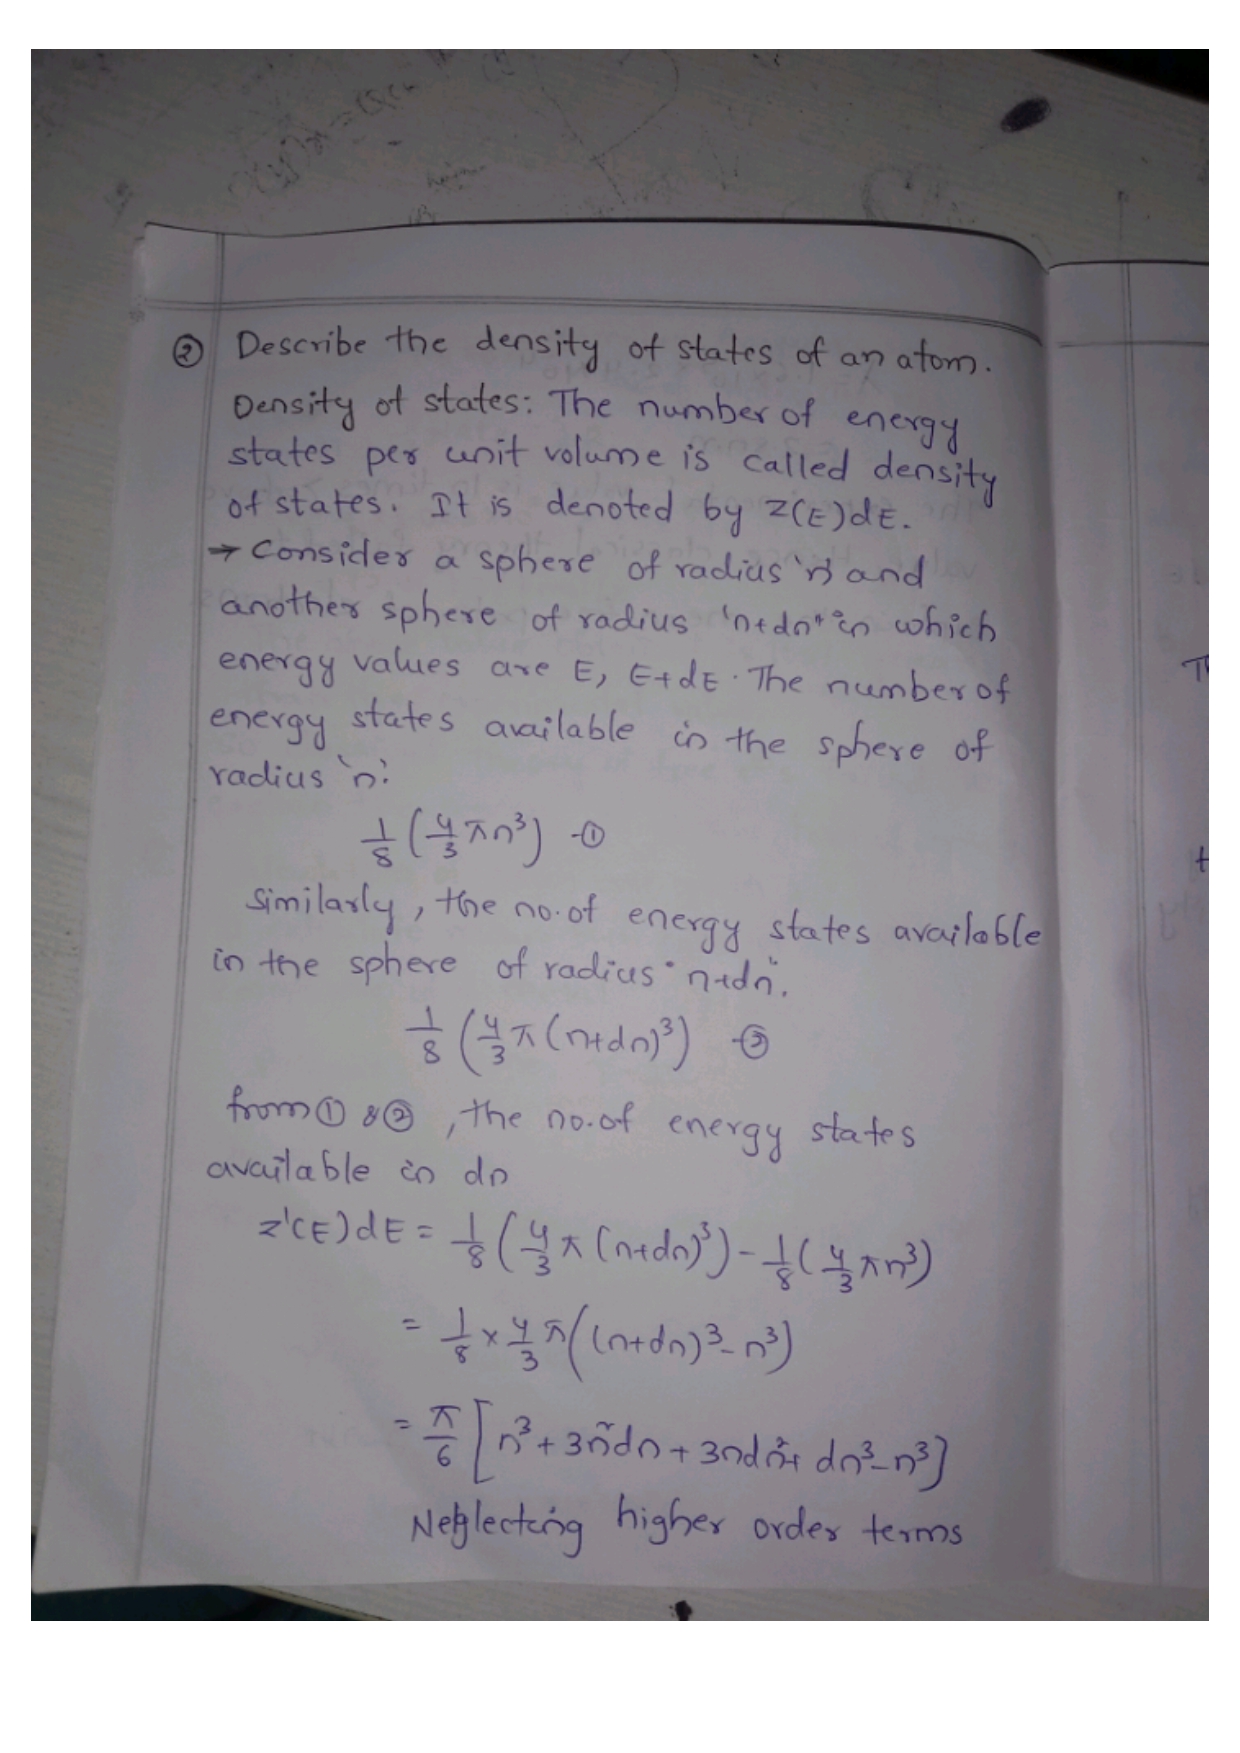 ② Describe the density of states of an atom.
Density of states: The number of energy
states per unit volume is called density
of states. It is denoted by Z(E)dE.
→ Consider a sphere of radius 'n' and
another sphere of radius 'n+dn' in which
energy values are E, E+dE. The number of
energy states available in the sphere of
radius 'n'.
1/8 (4/3 πn³) -①
Similarly, the no. of energy states available
in the sphere of radius "n+dn".
1/8 (4/3 π(n+dn)³) -②
from ① & ②, the no. of energy states
available in dn
z'(E)dE = 1/8 (4/3 π (n+dn)³) - 1/8 (4/3 πn³)
= 1/8 × 4/3 π((n+dn)³ - n³)
= π/6 [n³ + 3n²dn + 3ndn² + dn³ - n³]
Neglecting higher order terms